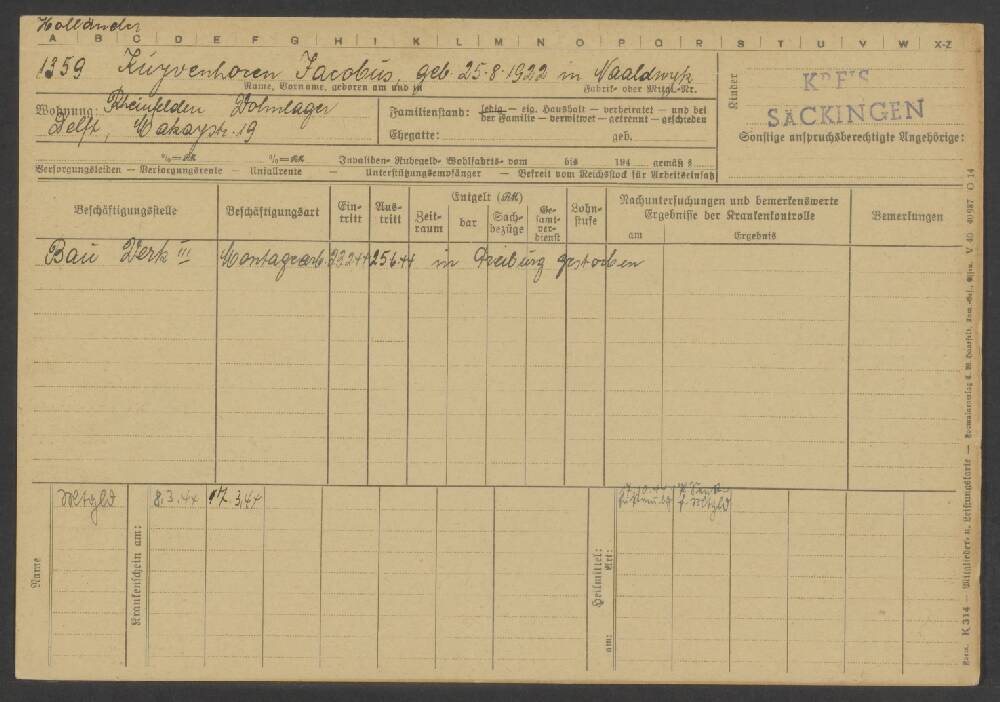 Holländer
A B C D E F G H I K L M N O P Q R S T U V W X-Z
1359 Kuyvenhoven Jacobus, geb. 25.8.1922 in Naaldwyk
Name, Vorname, geboren am und in Fabrik- oder Mitgl.-Nr.
Wohnung: Rheinfelden Wohnlager
Delft, 19
Familienstand: ledig — eig. Haushalt — verheiratet — und bei
der Familie — verwitwet — getrennt — geschieden
Ehegatte: geb.
Kinder
KREIS
SÄCKINGEN
Sonstige anspruchsberechtigte Angehörige:
%=RM %=RM Invaliden- Ruhegeld- Wohlfahrts- vom bis 194 gemäß §
Versorgungsleiden — Versorgungsrente — Unfallrente — Unterstützungsempfänger — Befreit vom Reichsstock für Arbeitseinsatz
Beschäftigungsstelle
Beschäftigungsart
Ein-
tritt
Aus-
tritt
Entgelt (RM)
Zeit-
raum
bar
Sach-
bezüge
Ge-
samt-
ver-
dienst
Lohn-
stufe
Nachuntersuchungen und bemerkenswerte
Ergebnisse der Krankenkontrolle
am Ergebnis
Bemerkungen
Bau Werk III Montagearb. 23244 25644 in Freiburg gestorben
Name
Mtgld
Krankenschein am:
8.3.44 17.3.44
Heilmittel:
Art:
am:
f. Mtgld
Form. K 314 — Mitglieder- u. Leistungskarte — V 40 40987 C 14